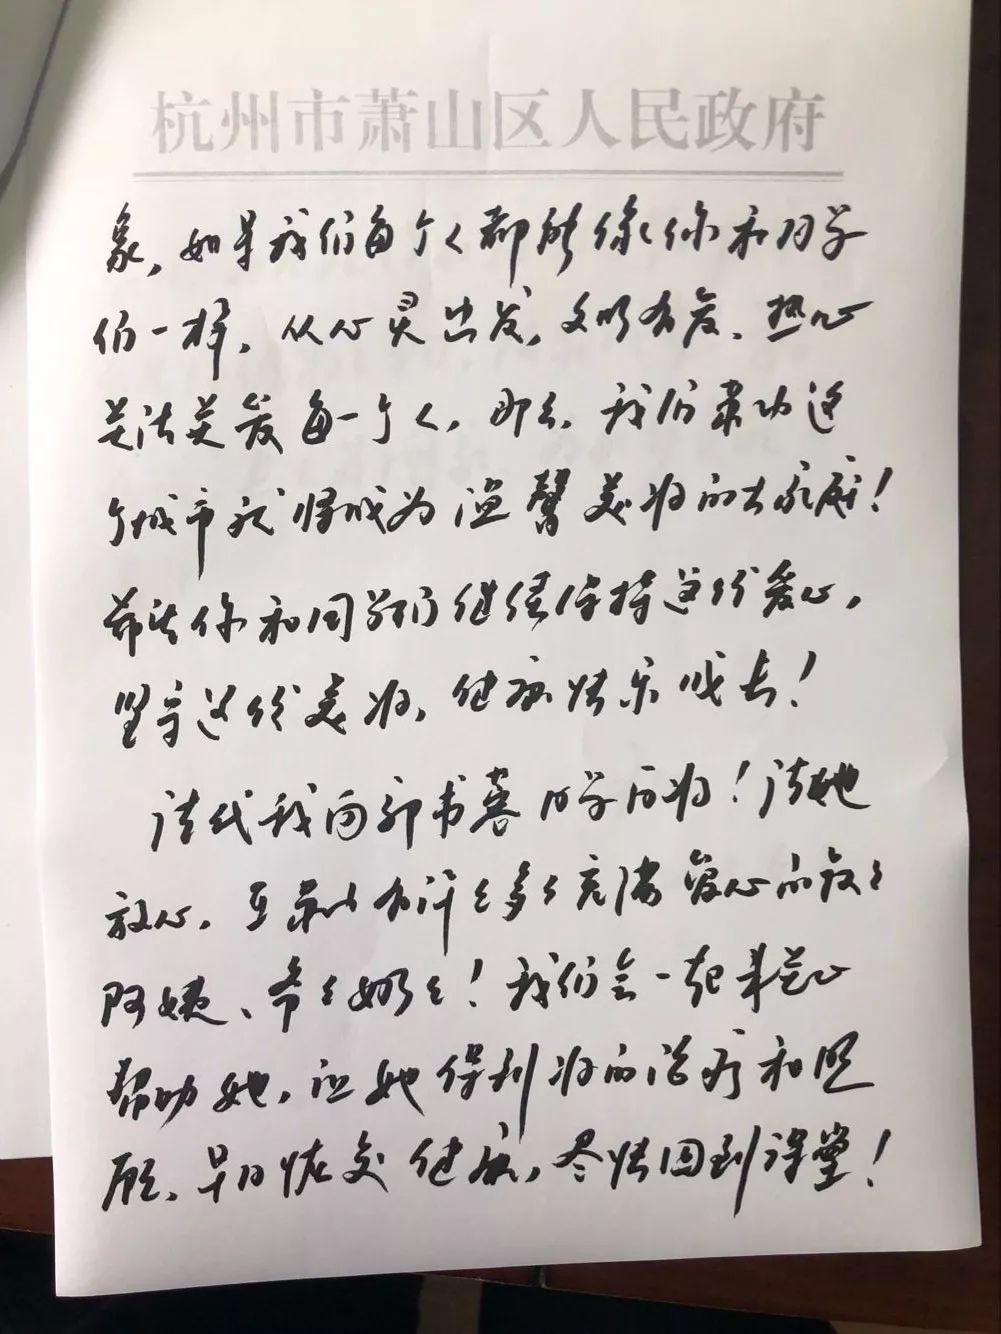 杭州市萧山区人民政府
象，如果我们每个人都能像你和同学
们一样，从心灵出发，文明有爱、热心
关注关爱每一个人，那么，我们萧山这
个城市就将成为温馨美好的大家庭！
希望你和同学们继续保持这份爱心，
坚守这份美好，健康快乐成长！
请代我向郭书蕎同学问好！请她
放心，在萧山有许许多多充满爱心的叔叔
阿姨、爷爷奶奶！我们会一起来关心
帮助她，让她得到好的治疗和照
顾，早日恢复健康，尽快回到课堂！